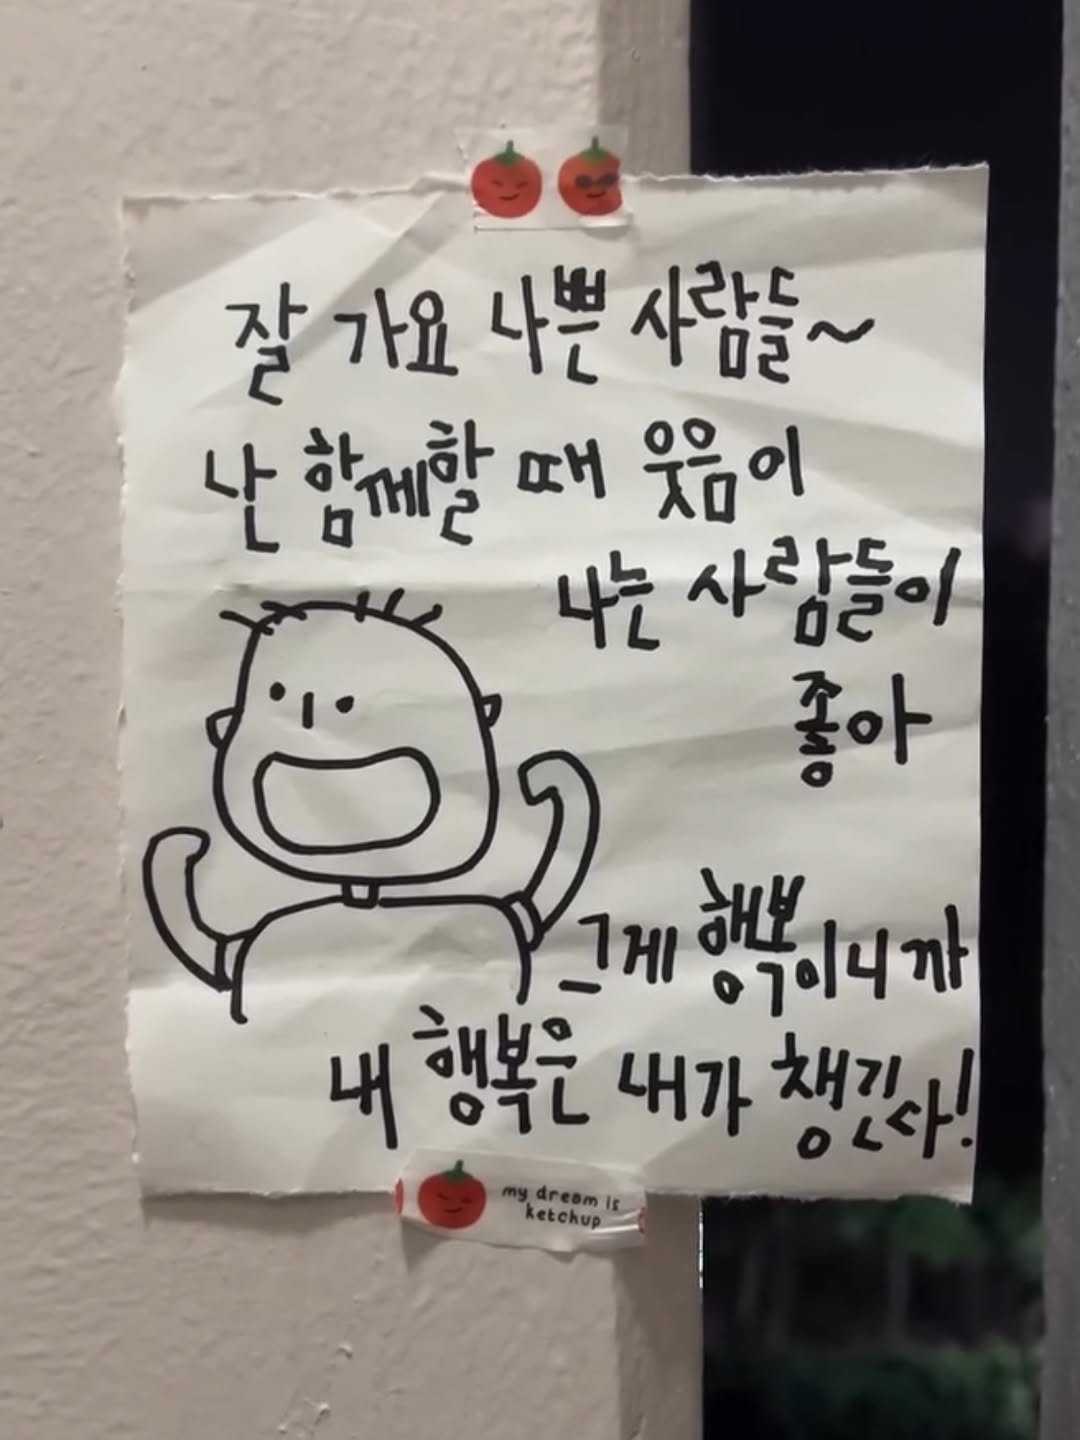 잘 가요 나쁜 사람들~
난 함께할 때 웃음이
나는 사람들이
좋아
그게 행복이니까
내 행복은 내가 챙긴다!
my dream is
ketchup